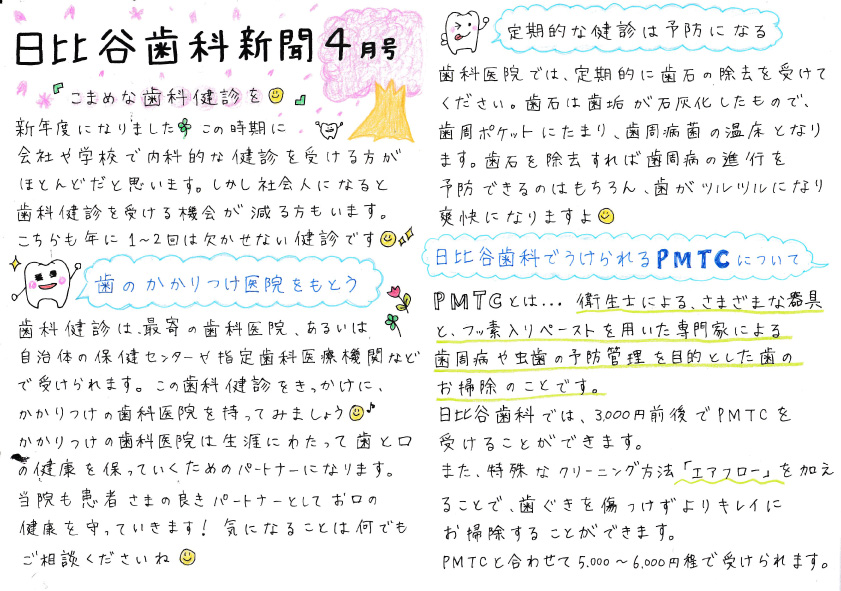 日比谷歯科新聞4月号
こまめな歯科健診を
新年度になりました この時期に
会社や学校で内科的な健診を受ける方が
ほとんどだと思います。しかし社会人になると
歯科健診を受ける機会が減る方もいます。
こちらも年に1~2回は欠かせない健診です
歯のかかりつけ医院をもとう
歯科健診は、最寄の歯科医院、あるいは
自治体の保健センターや指定歯科医療機関など
で受けられます。この歯科健診をきっかけに、
かかりつけの歯科医院を持ってみましょう
かかりつけの歯科医院は生涯にわたって歯と口
の健康を保っていくためのパートナーになります。
当院も患者さまの良きパートナーとしてお口の
健康を守っていきます! 気になることは何でも
ご相談くださいね
定期的な健診は予防になる
歯科医院では、定期的に歯石の除去を受けて
ください。歯石は歯垢が石灰化したもので、
歯周ポケットにたまり、歯周病菌の温床となり
ます。歯石を除去すれば歯周病の進行を
予防できるのはもちろん、歯がツルツルになり
爽快になりますよ
日比谷歯科でうけられるPMTCについて
PMTCとは... 衛生士による、さまざまな器具
と、フッ素入りペーストを用いた専門家による
歯周病や虫歯の予防管理を目的とした歯の
お掃除のことです。
日比谷歯科では、3,000円前後でPMTCを
受けることができます。
また、特殊なクリーニング方法「エアフロー」を加え
ることで、歯ぐきを傷つけずよりキレイに
お掃除することができます。
PMTCと合わせて5,000~6,000円程で受けられます。